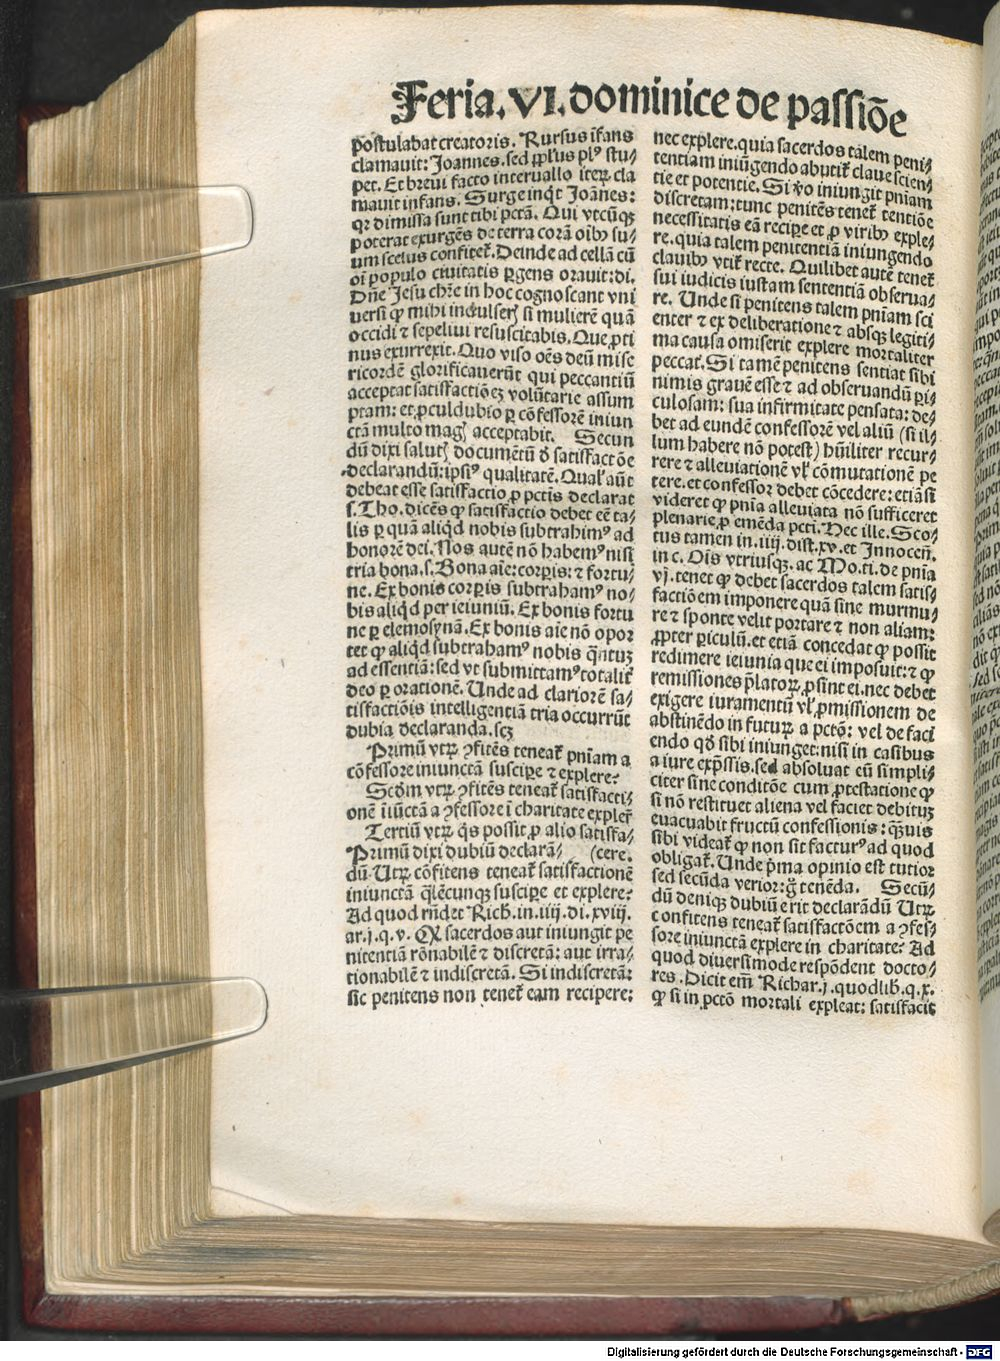 Feria.VI.dominice de passiõe
postulabat creatoris. Rursus ĩfans
clamauit: Joannes. sed ꝓpl'us plꝰ stu⸗
pet. Et breui facto interuallo iteꝝ cla
mauit infans. Surge inq̃t Joãnes:
qꝛ dimissa sunt tibi pctã. Qui vtcũqꝫ
poterat exurgẽs de terra corã oĩbꝰ su⸗
um scelus confitet᷑. Deinde ad cellã cũ
oĩ populo ciuitatis ꝑgens orauit: di.
Dñe Jesu chr̃e in hoc cognoscant vni
uersi ꝙ mihi indulseris si mulierẽ quã
occidi ⁊ sepeliui resuscitabis. Que ꝓti
nus exurrexit. Quo viso oẽs deũ mise
ricordẽ glorificauerũt qui peccantiũ
acceptat satisfactiõeꝫ volũtarie assum
ptam: et ꝓculdubio ꝑ cõfessorẽ iniun
ctã multo magis acceptabit. Secun
dũ dixi salutis documẽtũ ð satisfactõe
declarandũ: ipsiꝰ qualitatẽ. Qual' aũt
debeat esse satisfactio ꝓ pctis declarat
s. Tho. dicẽs ꝙ satisfactio debet eẽ ta⸗
lis ꝑ quã aliqd nobis subtrahimꝰ ad
honorẽ dei. Nos autẽ nõ habemꝰ nisi
tria bona. s. Bona aĩe: corꝑis: ⁊ fortu⸗
ne. Ex bonis corꝑis subtrahamꝰ no⸗
bis aliqd per ieiuniũ. Ex bonis fortu
ne ꝑ elemosynã. Ex bonis aĩe nõ opor
tet ꝙ aliqd subtrahamꝰ nobis q̃ntuꝫ
ad essentiã: sed vt submittamꝰ totalit᷑
deo ꝑ orationẽ. Unde ad clariorẽ sa⸗
tisfactiõis intelligentiã tria occurrũt
dubia declaranda. scꝫ
Primũ vtꝝ ꝯfitẽs teneat᷑ pniam a
cõfessore iniunctã suscipe ⁊ explere?
Scdm vtꝝ ꝯfitẽs teneat᷑ satisfacti⸗
onẽ ĩiũctã a ꝯfessore ĩ charitate explere
Tertiũ vtꝝ q̃s possit ꝓ alio satisfa⸗
Primũ dixi dubiũ declarã⸗ (cere.
dũ. Utꝝ cõfitens teneat᷑ satisfactionẽ
iniunctã q̃lẽcunqꝫ suscipe et explere?
Ad quod rñdet Rich. in. iiij. di. xviij.
ar. j. q. v. Qꝛ sacerdos aut iniungit pe
nitentiã rõnabilẽ ⁊ discretã: aut irra⸗
tionabilẽ ⁊ indiscretã. Si indiscretã:
sic penitens non tenet᷑ eam recipere:
nec explere. quia sacerdos talem peni⸗
tentiam iniũgendo abutit᷑ claue scien⸗
tie et potentie. Si ꝟo iniungit pniam
discretam: tunc penitẽs tenet᷑ tentiõe
necessitatis eã recipe et ꝓ viribꝰ exple⸗
re. quia talem penitentiã iniungendo
clauibꝰ vtit᷑ recte. Quilibet autẽ tenet᷑
sui iudicis iustam sententiã obserua⸗
re. Unde si penitens talem pniam sci
enter ⁊ ex deliberatione ⁊ absqꝫ legiti⸗
ma causa omiserit explere mortaliter
peccat. Si tamẽ penitens sentiat sibi
nimis grauẽ esse ⁊ ad obseruandũ pi⸗
culosam: sua infirmitate pensata: de⸗
bet ad eundẽ confessorẽ vel aliũ (si il⸗
lum habere nõ potest) hũiliter recur⸗
rere ⁊ alleuiationẽ vl' cõmutationẽ pe
tere. et confessor debet cõcedere: etiã si
videret ꝙ pnia alleuiata nõ sufficeret
plenarie ꝓ emẽda pcti. Hec ille. Sco⸗
tus tamen in. iiij. dist. xv. et Innocen̄.
in c. Ois vtriusqꝫ. ac Mo. ti. de pnia
vj. tenet ꝙ debet sacerdos talem satis⸗
factiõem imponere quã sine murmu⸗
re ⁊ sponte velit portare ⁊ non aliam:
ꝓpter piculũ. et etiã concedat ꝙ possit
redimere ieiunia que ei imposuit: ⁊ ꝙ
remissiones p̃latoꝝ ꝓsint ei. nec debet
exigere iuramentũ vl' ꝓmissionem de
abstinẽdo in futuꝝ a pctõ: vel de faci
endo qð sibi iniunget: nisi in casibus
a iure exp̃ssis. sed absoluat eũ simpli⸗
citer sine conditõe cum ꝓtestatione ꝙ
si nõ restituet aliena vel faciet debituꝫ
euacuabit fructũ confessionis: q̃uis
sibi videat᷑ ꝙ non sit facturꝰ ad quod
obligat᷑. Unde p̃ma opinio est tutior
sed secũda verior: g̊ tenẽda. Secũ⸗
dũ deniqꝫ dubiũ erit declarãdũ Utꝝ
confitens teneat᷑ satisfactõem a ꝯfes⸗
sore iniunctã explere in charitate? Ad
quod diuersimode respõdent docto⸗
res. Dicit em̃ Richar. j. quodlib. q. x.
ꝙ si in pctõ mortali expleat: satisfacit
Digitalisierung gefördert durch die Deutsche Forschungsgemeinschaft - DFG